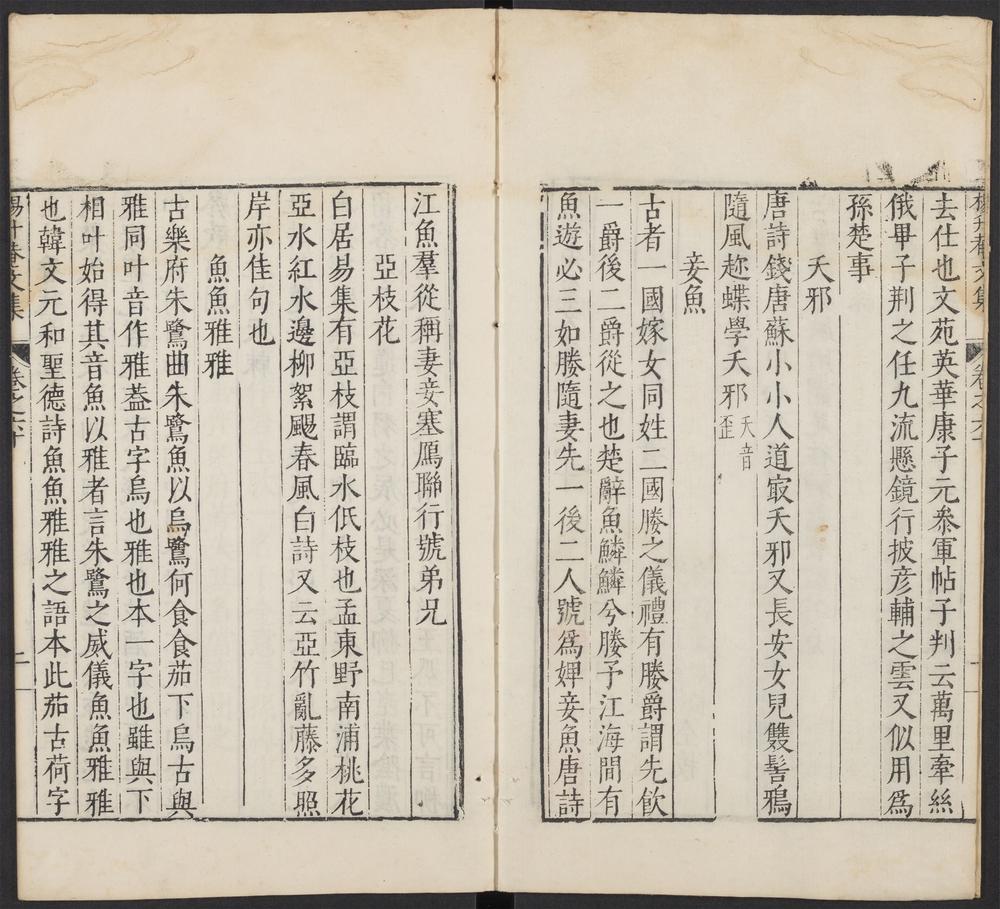 去仕也文苑英華康子元叅軍帖子判云萬里牽絲
俄畢子荆之任九流懸鏡行披彦輔之雲又似用爲
孫楚事
夭邪
唐詩錢唐蘇小小人道㝡夭邪又長安女兒雙髻鴉
隨風趂蝶學夭邪夭音歪
妾魚
古者一國嫁女同姓二國媵之儀禮有媵爵謂先飲
一爵後二爵從之也楚辭魚鱗鱗兮媵予江海間有
魚遊必三如媵隨妻先一後二人號爲婢妾魚唐詩
江魚羣從稱妻妾塞鴈聯行號弟兄
亞枝花
白居易集有亞枝謂臨水低枝也孟東野南浦桃花
亞水紅水邊柳絮颺春風白詩又云亞竹亂藤多照
岸亦佳句也
魚魚雅雅
古樂府朱鷺曲朱鷺魚以烏鷺何食食茄下烏古與
雅同叶音作雅葢古字烏也雅也本一字也雖與下
相叶始得其音魚以雅者言朱鷺之威儀魚魚雅雅
也韓文元和聖德詩魚魚雅雅之語本此茄古荷字
楊升菴文集
卷之六十
二